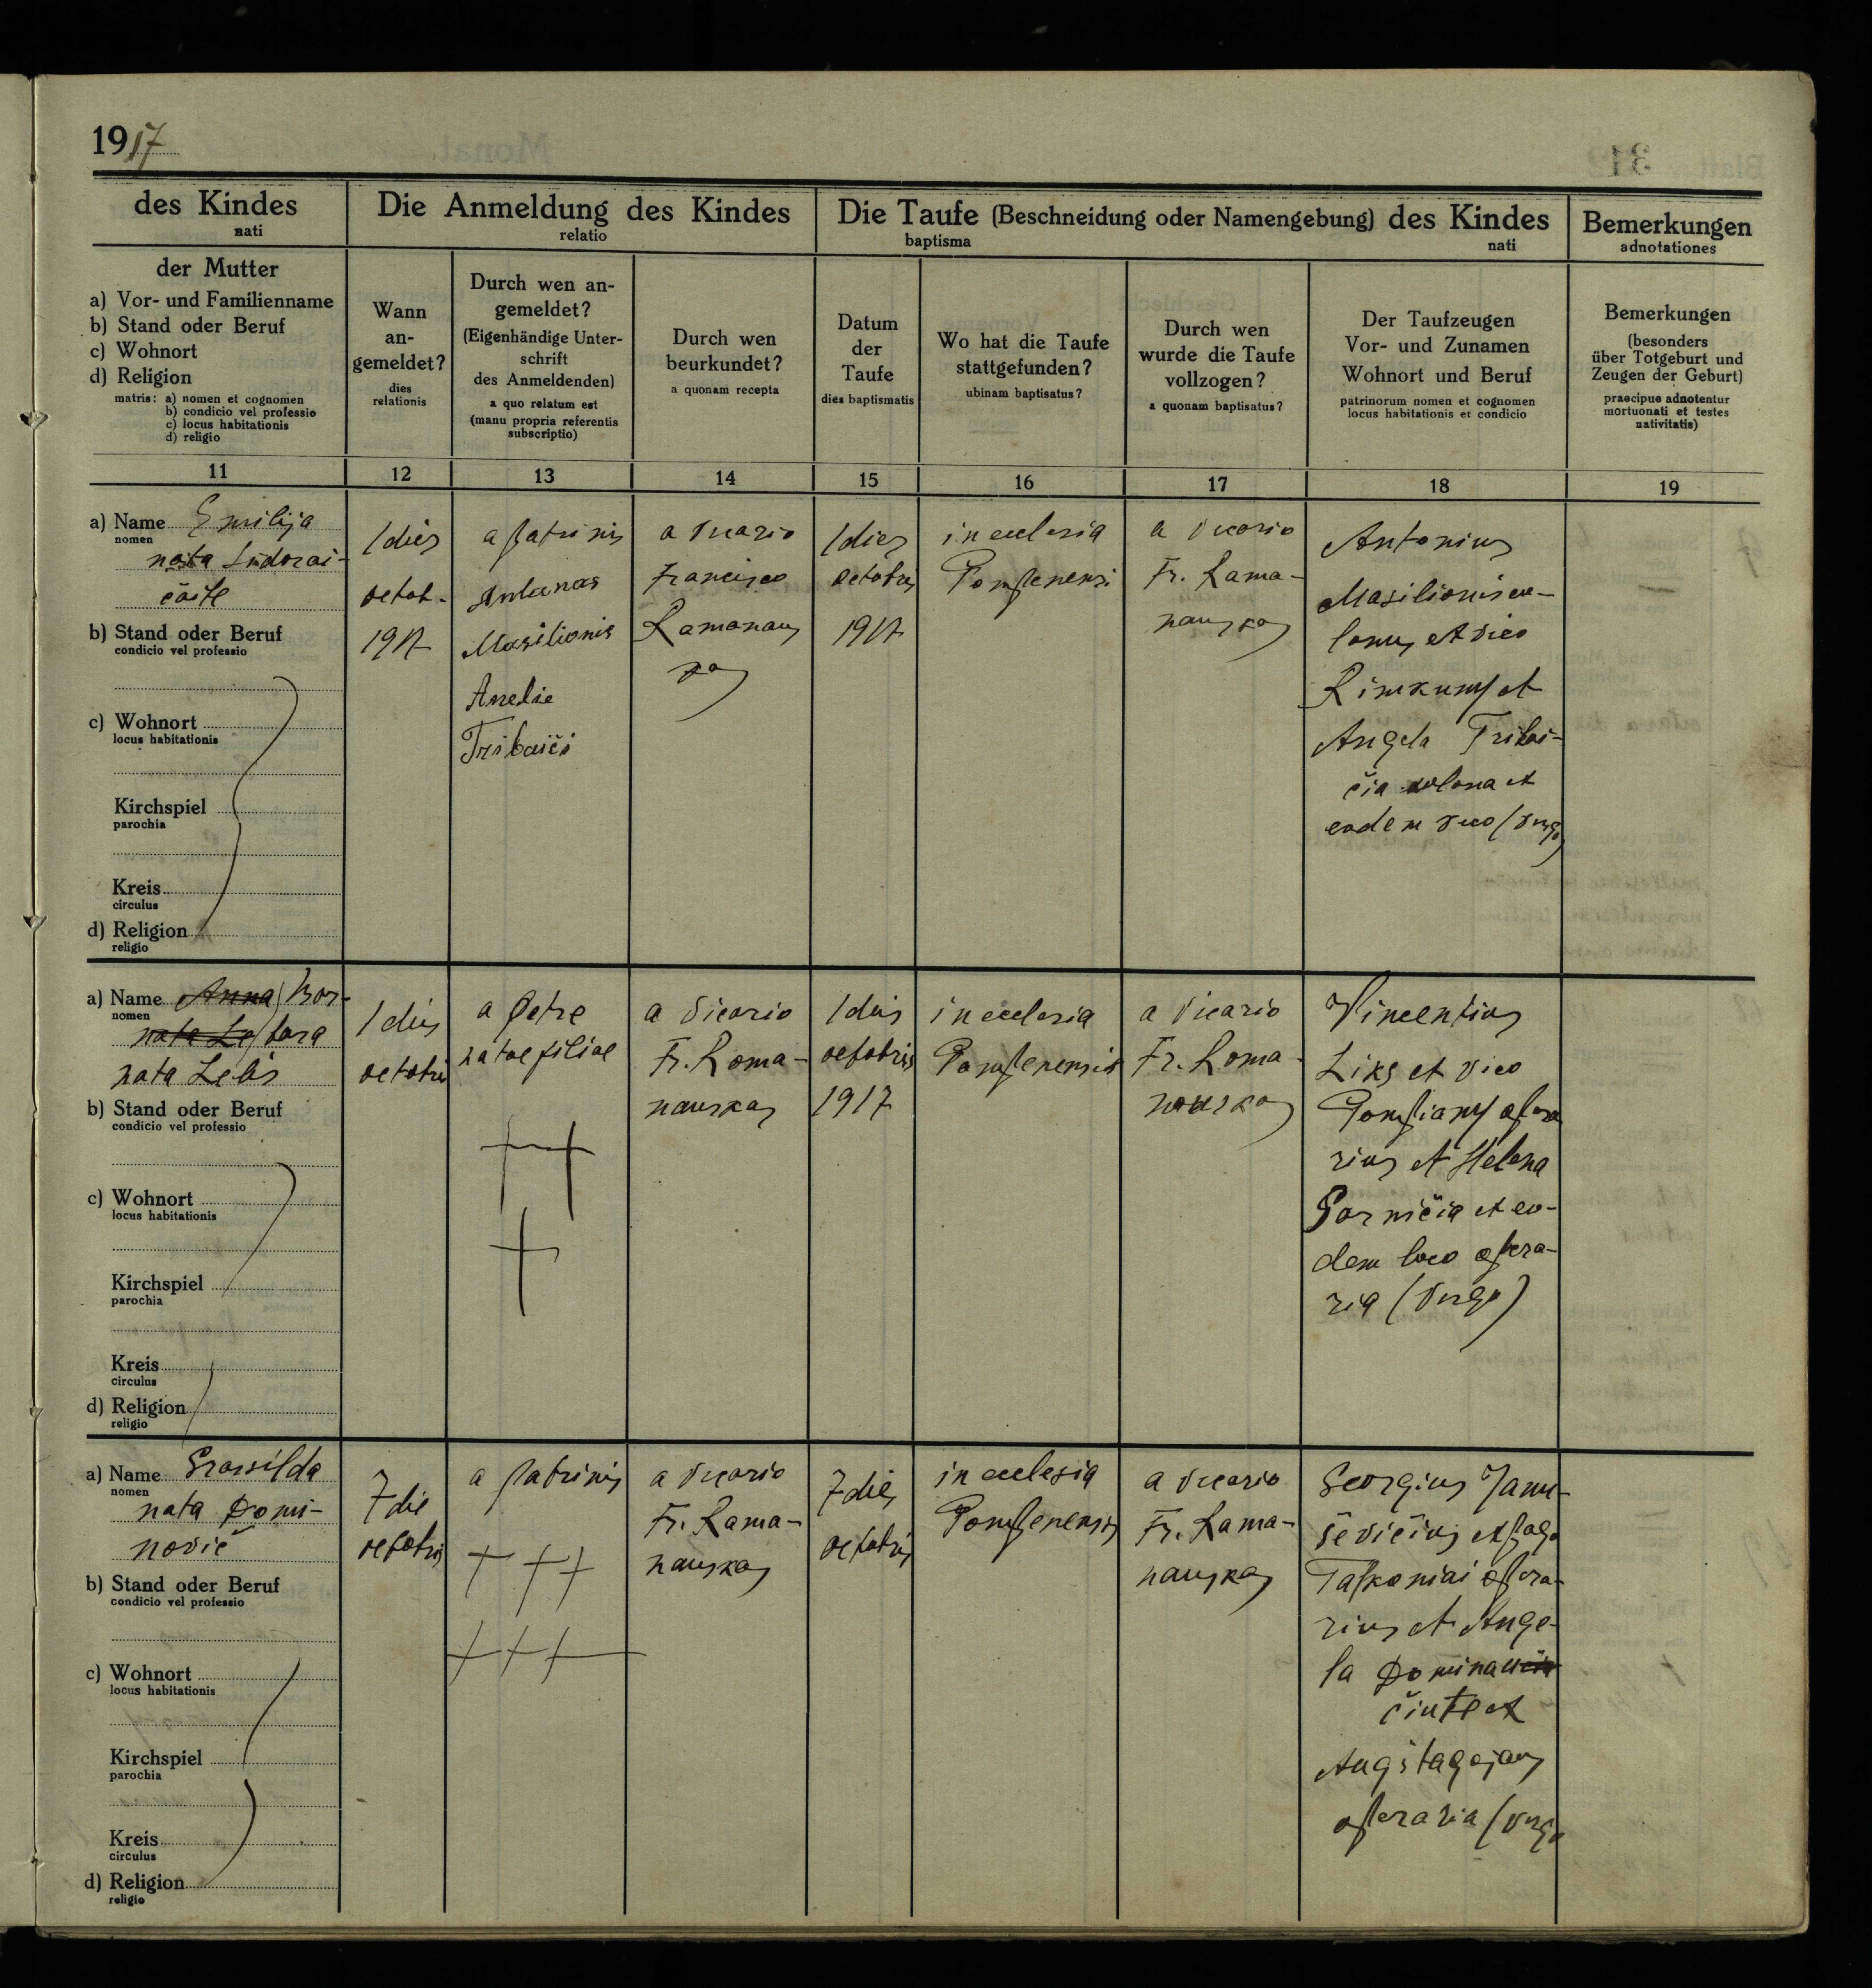 1917
des Kindes
nati
Die Anmeldung des Kindes
relatio
Die Taufe (Beschneidung oder Namengebung) des Kindes
baptisma
nati
Bemerkungen
adnotationes
der Mutter
a) Vor- und Familienname
b) Stand oder Beruf
c) Wohnort
d) Religion
matris: a) nomen et cognomen
b) condicio vel professio
c) locus habitationis
d) religio
Wann
an-
gemeldet?
dies
relationis
Durch wen an-
gemeldet?
(Eigenhändige Unter-
schrift
des Anmeldenden)
a quo relatum est
(manu propria referentis
subscriptio)
Durch wen
beurkundet?
a quonam recepta
Datum
der
Taufe
dies baptismatis
Wo hat die Taufe
stattgefunden?
ubinam baptisatus?
Durch wen
wurde die Taufe
vollzogen?
a quonam baptisatus?
Der Taufzeugen
Vor- und Zunamen
Wohnort und Beruf
patrinorum nomen et cognomen
locus habitationis et condicio
Bemerkungen
(besonders
über Totgeburt und
Zeugen der Geburt)
praecipue adnotentur
mortuonati et testes
nativitatis)
11
12
13
14
15
16
17
18
19
a) Name Emilija
nomen
nata
b) Stand oder Beruf
condicio vel professio
c) Wohnort
locus habitationis
Kirchspiel
parochia
Kreis
circulus
d) Religion
religio
1 dies
octob.
1917
a patrinis
Antanas
Masilionis
Anelie
a vicario
Francisco
Ramanaus
kas
1 dies
octobris
1917
in ecclesia
a vicario
Fr. Rama-
nauskas
Antonius
Masilionis co-
lonus et vico
et
Angela Tribai-
čia colona et
eodem vico (virgo)
a) Name Anna Bar-
nomen
nata Le bara
nata Lebis
b) Stand oder Beruf
condicio vel professio
c) Wohnort
locus habitationis
Kirchspiel
parochia
Kreis
circulus
d) Religion
religio
1 dies
octobris
a patre
natae filiae
a vicario
Fr. Rama-
nauskas
1 dies
octobris
1917
in ecclesia
a vicario
Fr. Rama-
nauskas
Vincentius
Liks et vico
opera
rius et Helena
et eo-
dem loco opera-
ria (virgo)
a) Name
nomen
nata Domi-
novič
b) Stand oder Beruf
condicio vel professio
c) Wohnort
locus habitationis
Kirchspiel
parochia
Kreis
circulus
d) Religion
religio
7 die
octobris
a patrinis
a vicario
Fr. Rama-
nauskas
7 dies
octobris
in ecclesia
a vicario
Fr. Rama-
nauskas
Georgius Janu-
ševičius et pago
opera-
rius et Ange-
la
čiute et
operaria (virgo